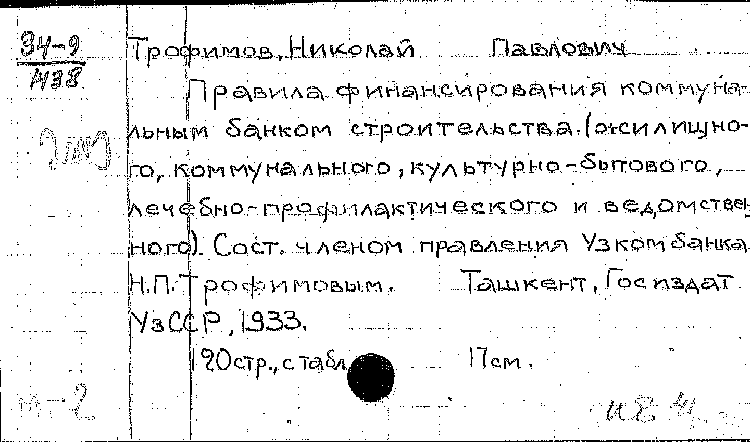 34-9
1438
Трофимов, Николай Павлович
Правила финансирования коммуна-
льным банком строительства.(жилищно-
го, коммунального, культурно-бытового,
лечебно-профилактического и ведомствен-
ного). Сост. членом правления Узкомбанка
Н.П. Трофимовым. Ташкент, Госиздат
УзССР, 1933.
120стр., с табл. 17см.
м-2